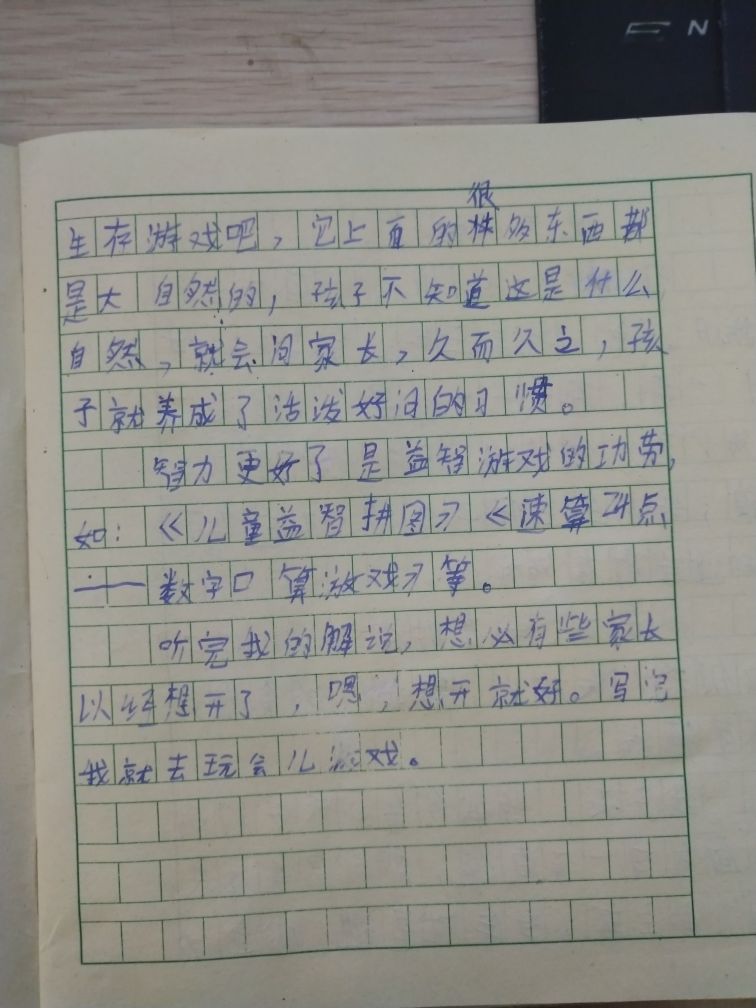 N
很
生存游戏吧，它上面的 多东西都
是大自然的，孩子不知道这是什么
自然，就会问家长，久而久之，孩
子就养成了活泼好问的习惯。
智力更好了是益智游戏的功劳，
如：《儿童益智拼图》《速算24点
——数字口算游戏》等。
听完我的解说，想必有些家长
以经想开了，嗯，想开就好。写完
我就去玩会儿游戏。